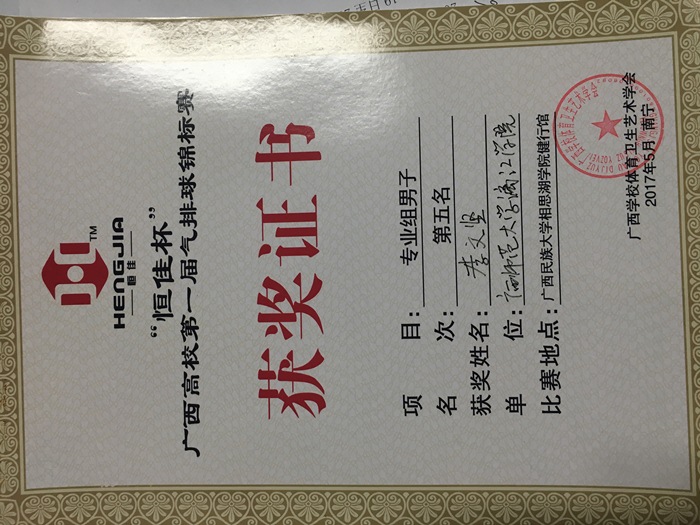 HENGJIA TM
恒佳
“恒佳杯”
广西高校第一届气排球锦标赛
获奖证书
项 目：专业组男子
名 次：第五名
获奖姓名：李文坚
单 位：广西师范大学漓江学院
比赛地点：广西民族大学相思湖学院健行馆
广西学校体育卫生艺术学会
2017年5月 南宁